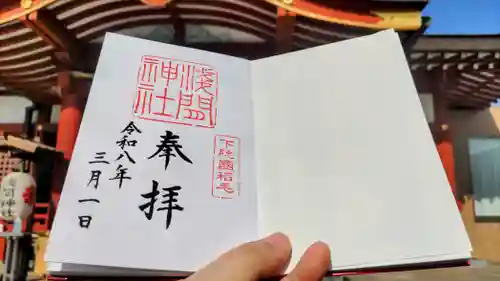 浅間神社
下総國稲毛
奉拝
令和八年
三月一日